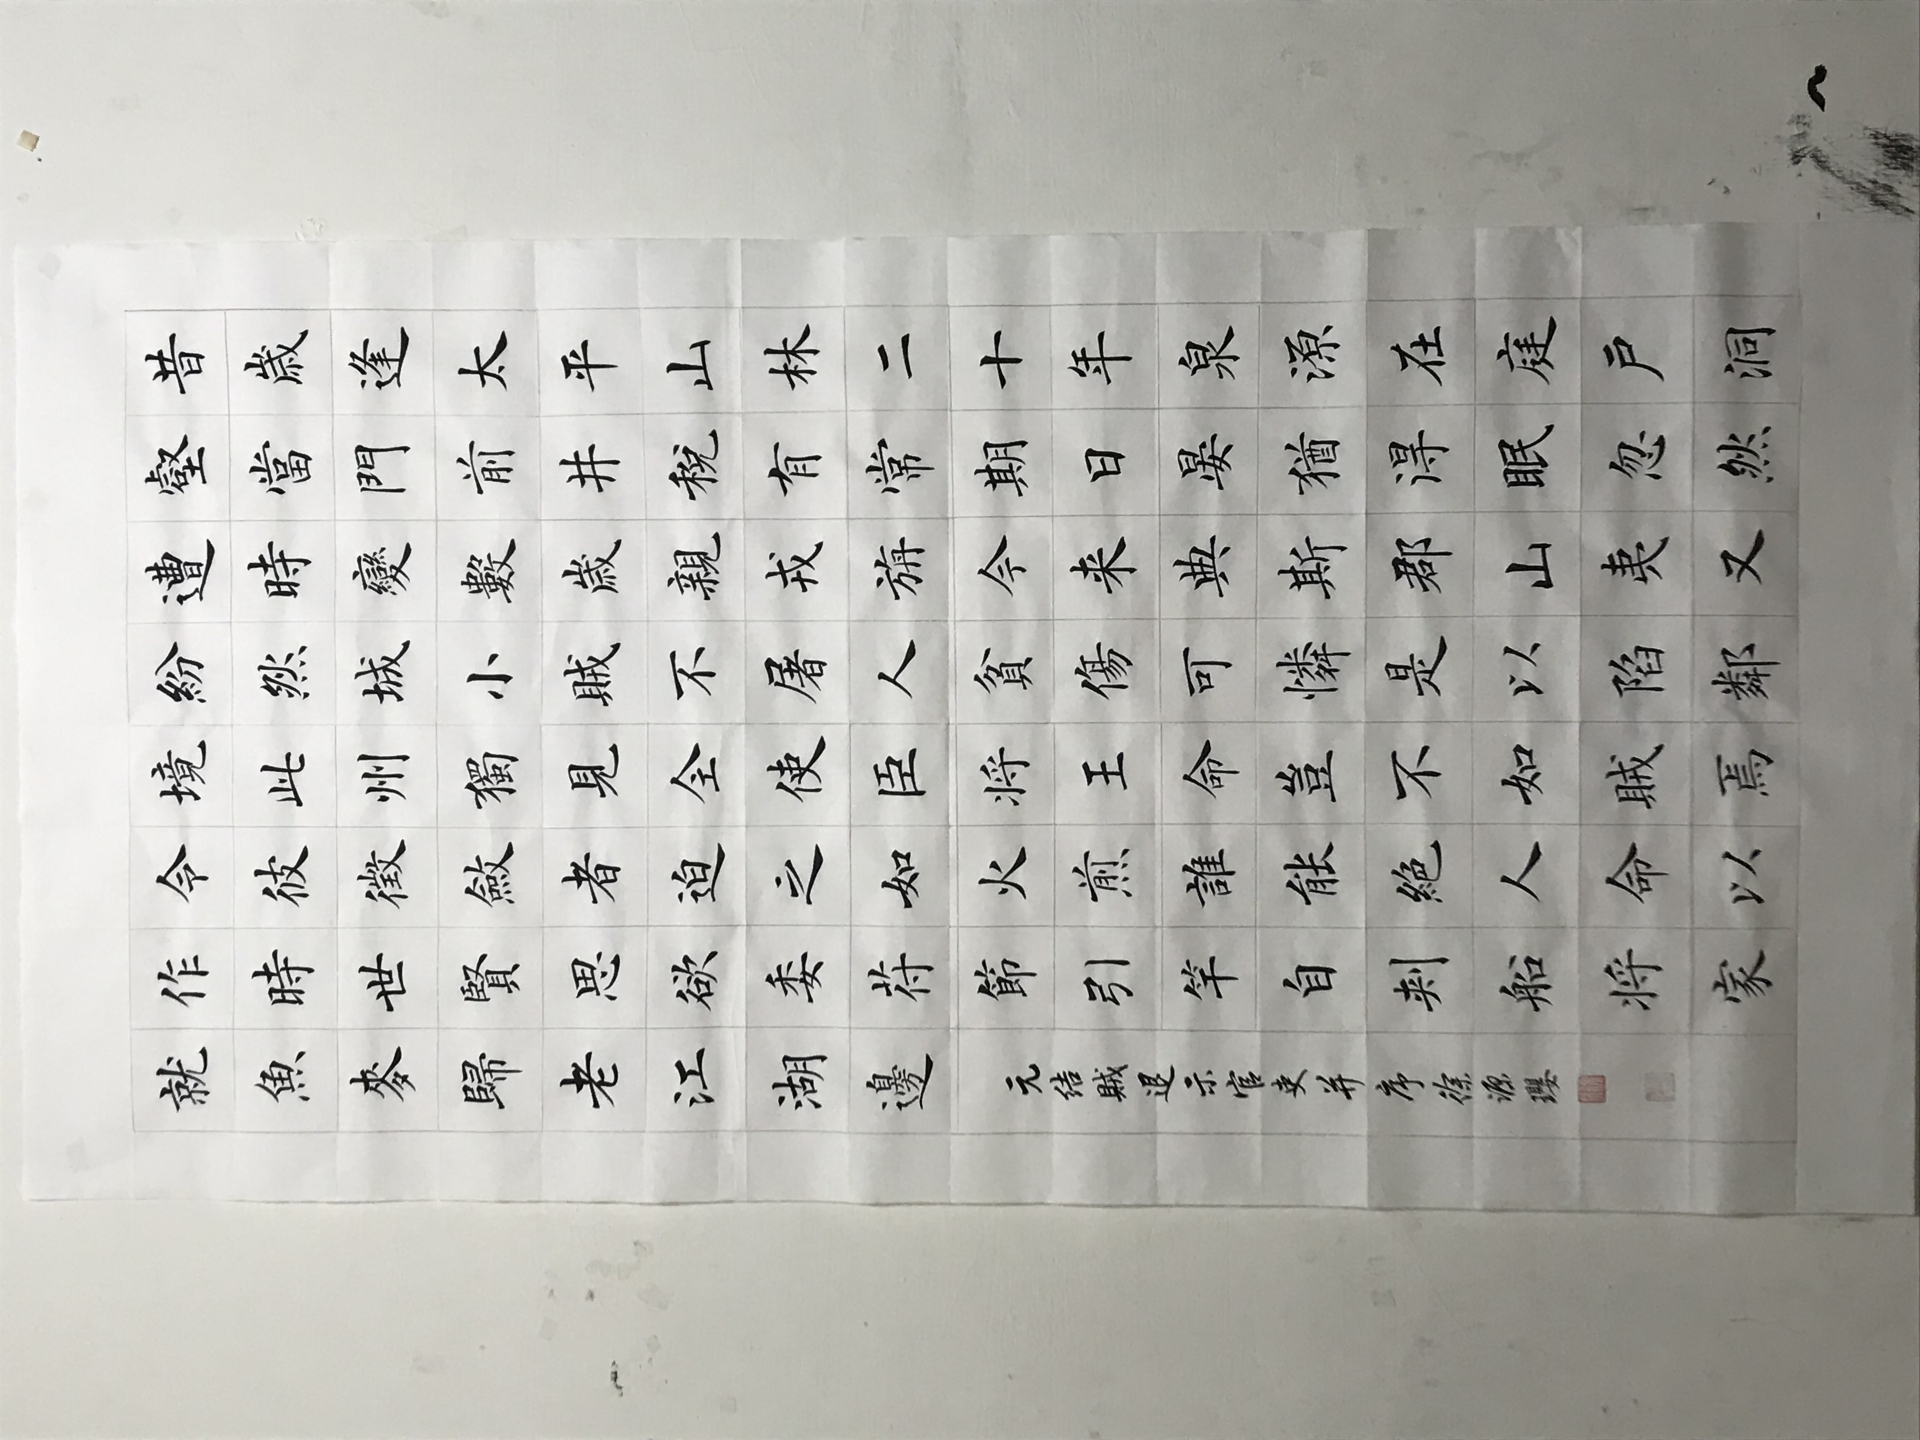 昔歲逢太平山林二十年泉源在庭戶洞
壑當門前井稅有常期日晏猶得眠忽然
遭時變數歲親戎旃今来典斯郡山夷又
紛然城小賊不屠人貧傷可憐是以陷鄰
境此州獨見全使臣将王命豈不如賊焉
令彼徵斂者迫之如火煎誰能絕人命以
作時世賢思欲委符節引竿自刺船将家
就魚麥歸老江湖邊
元结賊退示官吏并序徐源璎